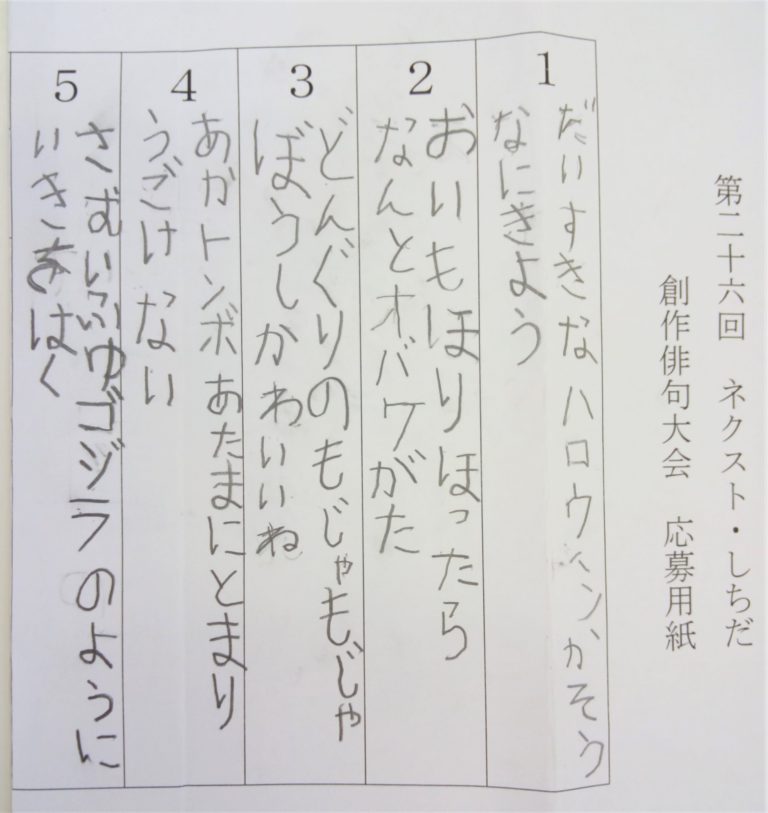 第二十六回　ネクスト・しちだ
創作俳句大会　応募用紙
1
だいすきな ハロウィンかそう
なにきよう
2
おいもほり ほったら
なんとオバケがた
3
どんぐりのもじゃもじゃ
ぼうしかわいいね
4
あかトンボ あたまにとまり
うごけない
5
さむいふゆゴジラのように
いきをはく